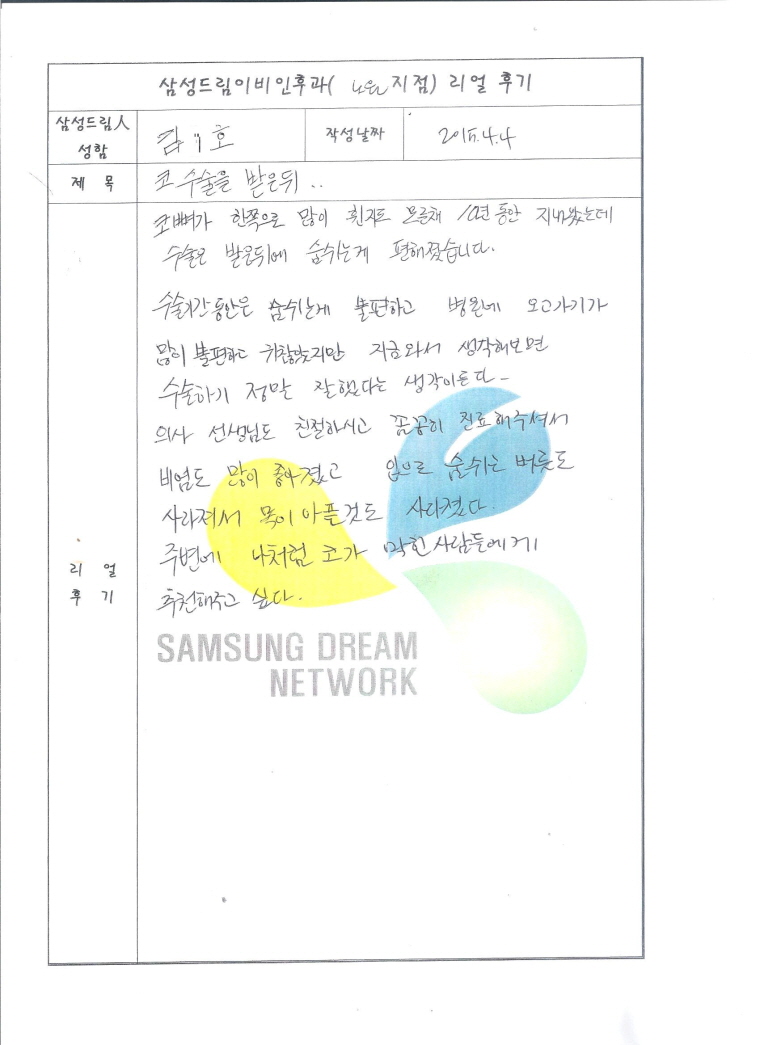 삼성드림이비인후과( 노원 지점) 리얼 후기
삼성드림人
성함
작성날짜
2015.4.4
제 목
코 수술을 받은뒤 ..
코뼈가 한쪽으로 많이 휜지도 모른채 10년 동안 지내왔는데
수술은 받은뒤에 숨쉬는게 편해졌습니다.
수술기간 동안은 숨쉬는게 불편하고 병원에 오고가기가
많이 불편하고 귀찮았지만 지금와서 생각해보면
수술하기 정말 잘했다는 생각이든다-
의사 선생님도 친절하시고 꼼꼼히 진료해주셔서
비염도 많이 좋아졌고 입으로 숨쉬는 버릇도
사라져서 목이 아플것도 사라졌다.
주변에 나처럼 코가 막힌 사람들에게
추천해주고 싶다.
리 얼
후 기
SAMSUNG DREAM
NETWORK